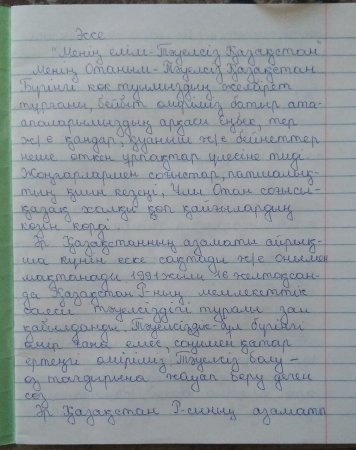 Эссе
"Менің елім-Тәуелсіз Қазақстан"
Менің Отаным-Тәуелсіз Қазақстан
Бүгінгі көк туымыздың желбіреп
тұрғаны, бейбіт өміріміз батыр ата-
апаларымыздың арқасы еңбек, тер
ж/е қандар, қуаныш ж/е бейнеттер
неше өткен ұрпақтар үлесіне тиді
Жоңғарлармен соғыстар, патшалық-
тың қиын кезеңі, Ұлы Отан соғысы-
қазақ халқы көп қайғылардың
көзін көрді.
Әр Қазақстанның азаматы айрық-
ша күнін еске сақтайды ж/е онымен
мақтанады 1991 жылы 16 желтоқсан-
да Қазақстан Р-ның мемлекеттік
тәуелсіздігі туралы заң
қабылданды. Тәуелсіздік-бұл бүгінгі
өмір ғана емес, сонымен қатар
ертеңгі өміріміз Тәуелсіз болу-
өз тағдырына жауап беру деген
сөз
Әр Қазақстан Р-сының азаматы